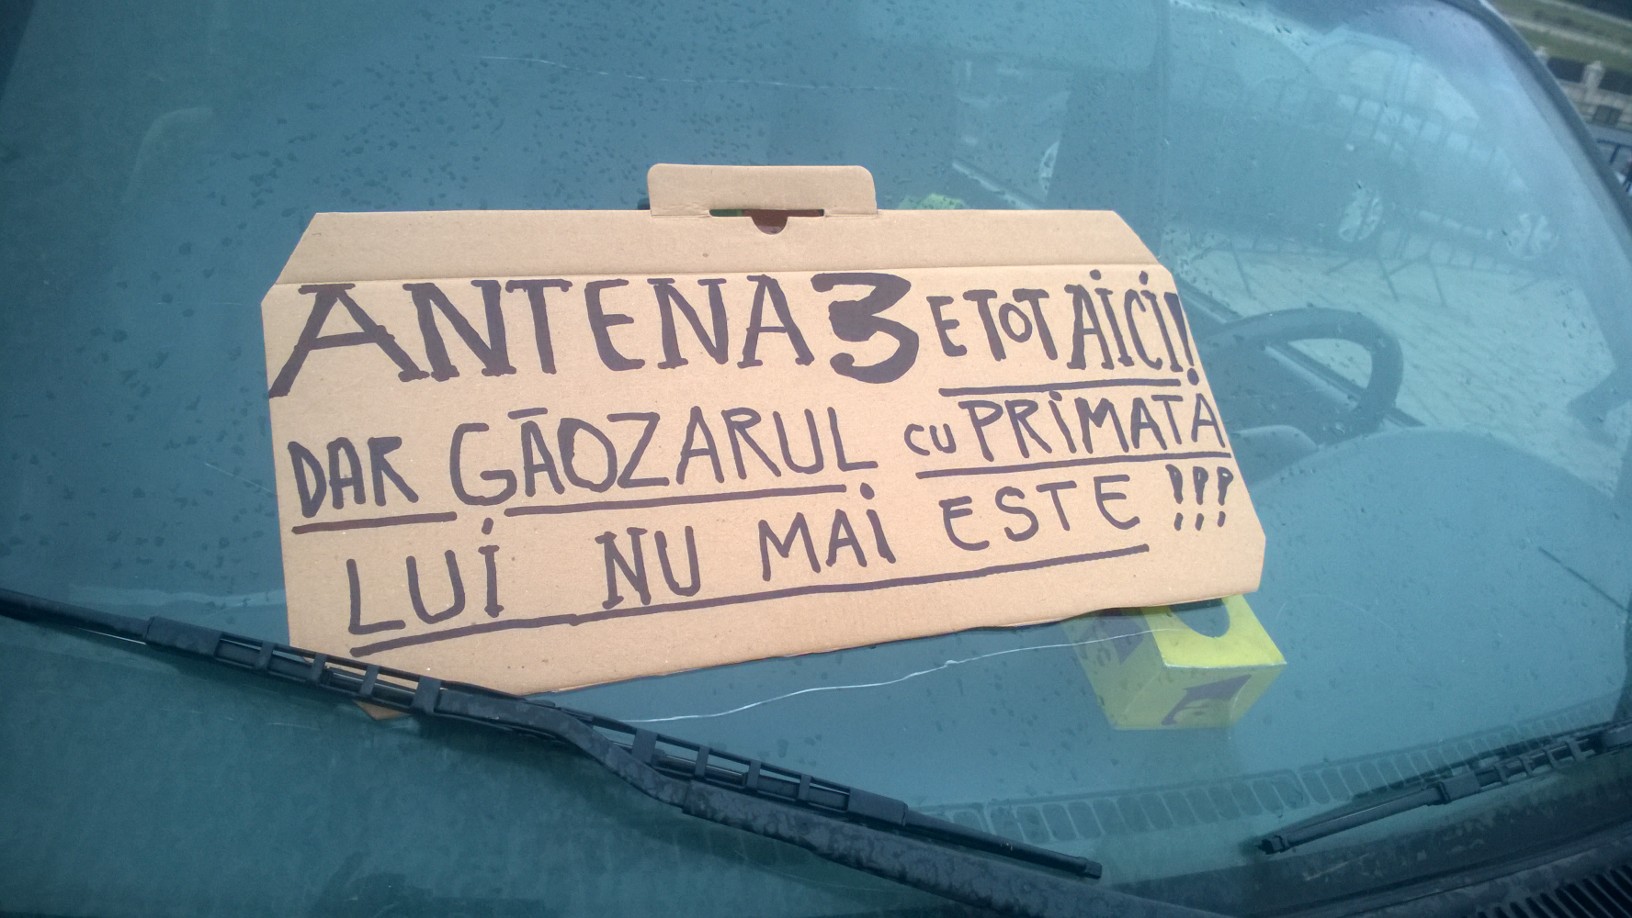 ANTENA 3 E TOT AICI!
DAR GĀOZARUL CU PRIMATA
LUI NU MAI ESTE !!!